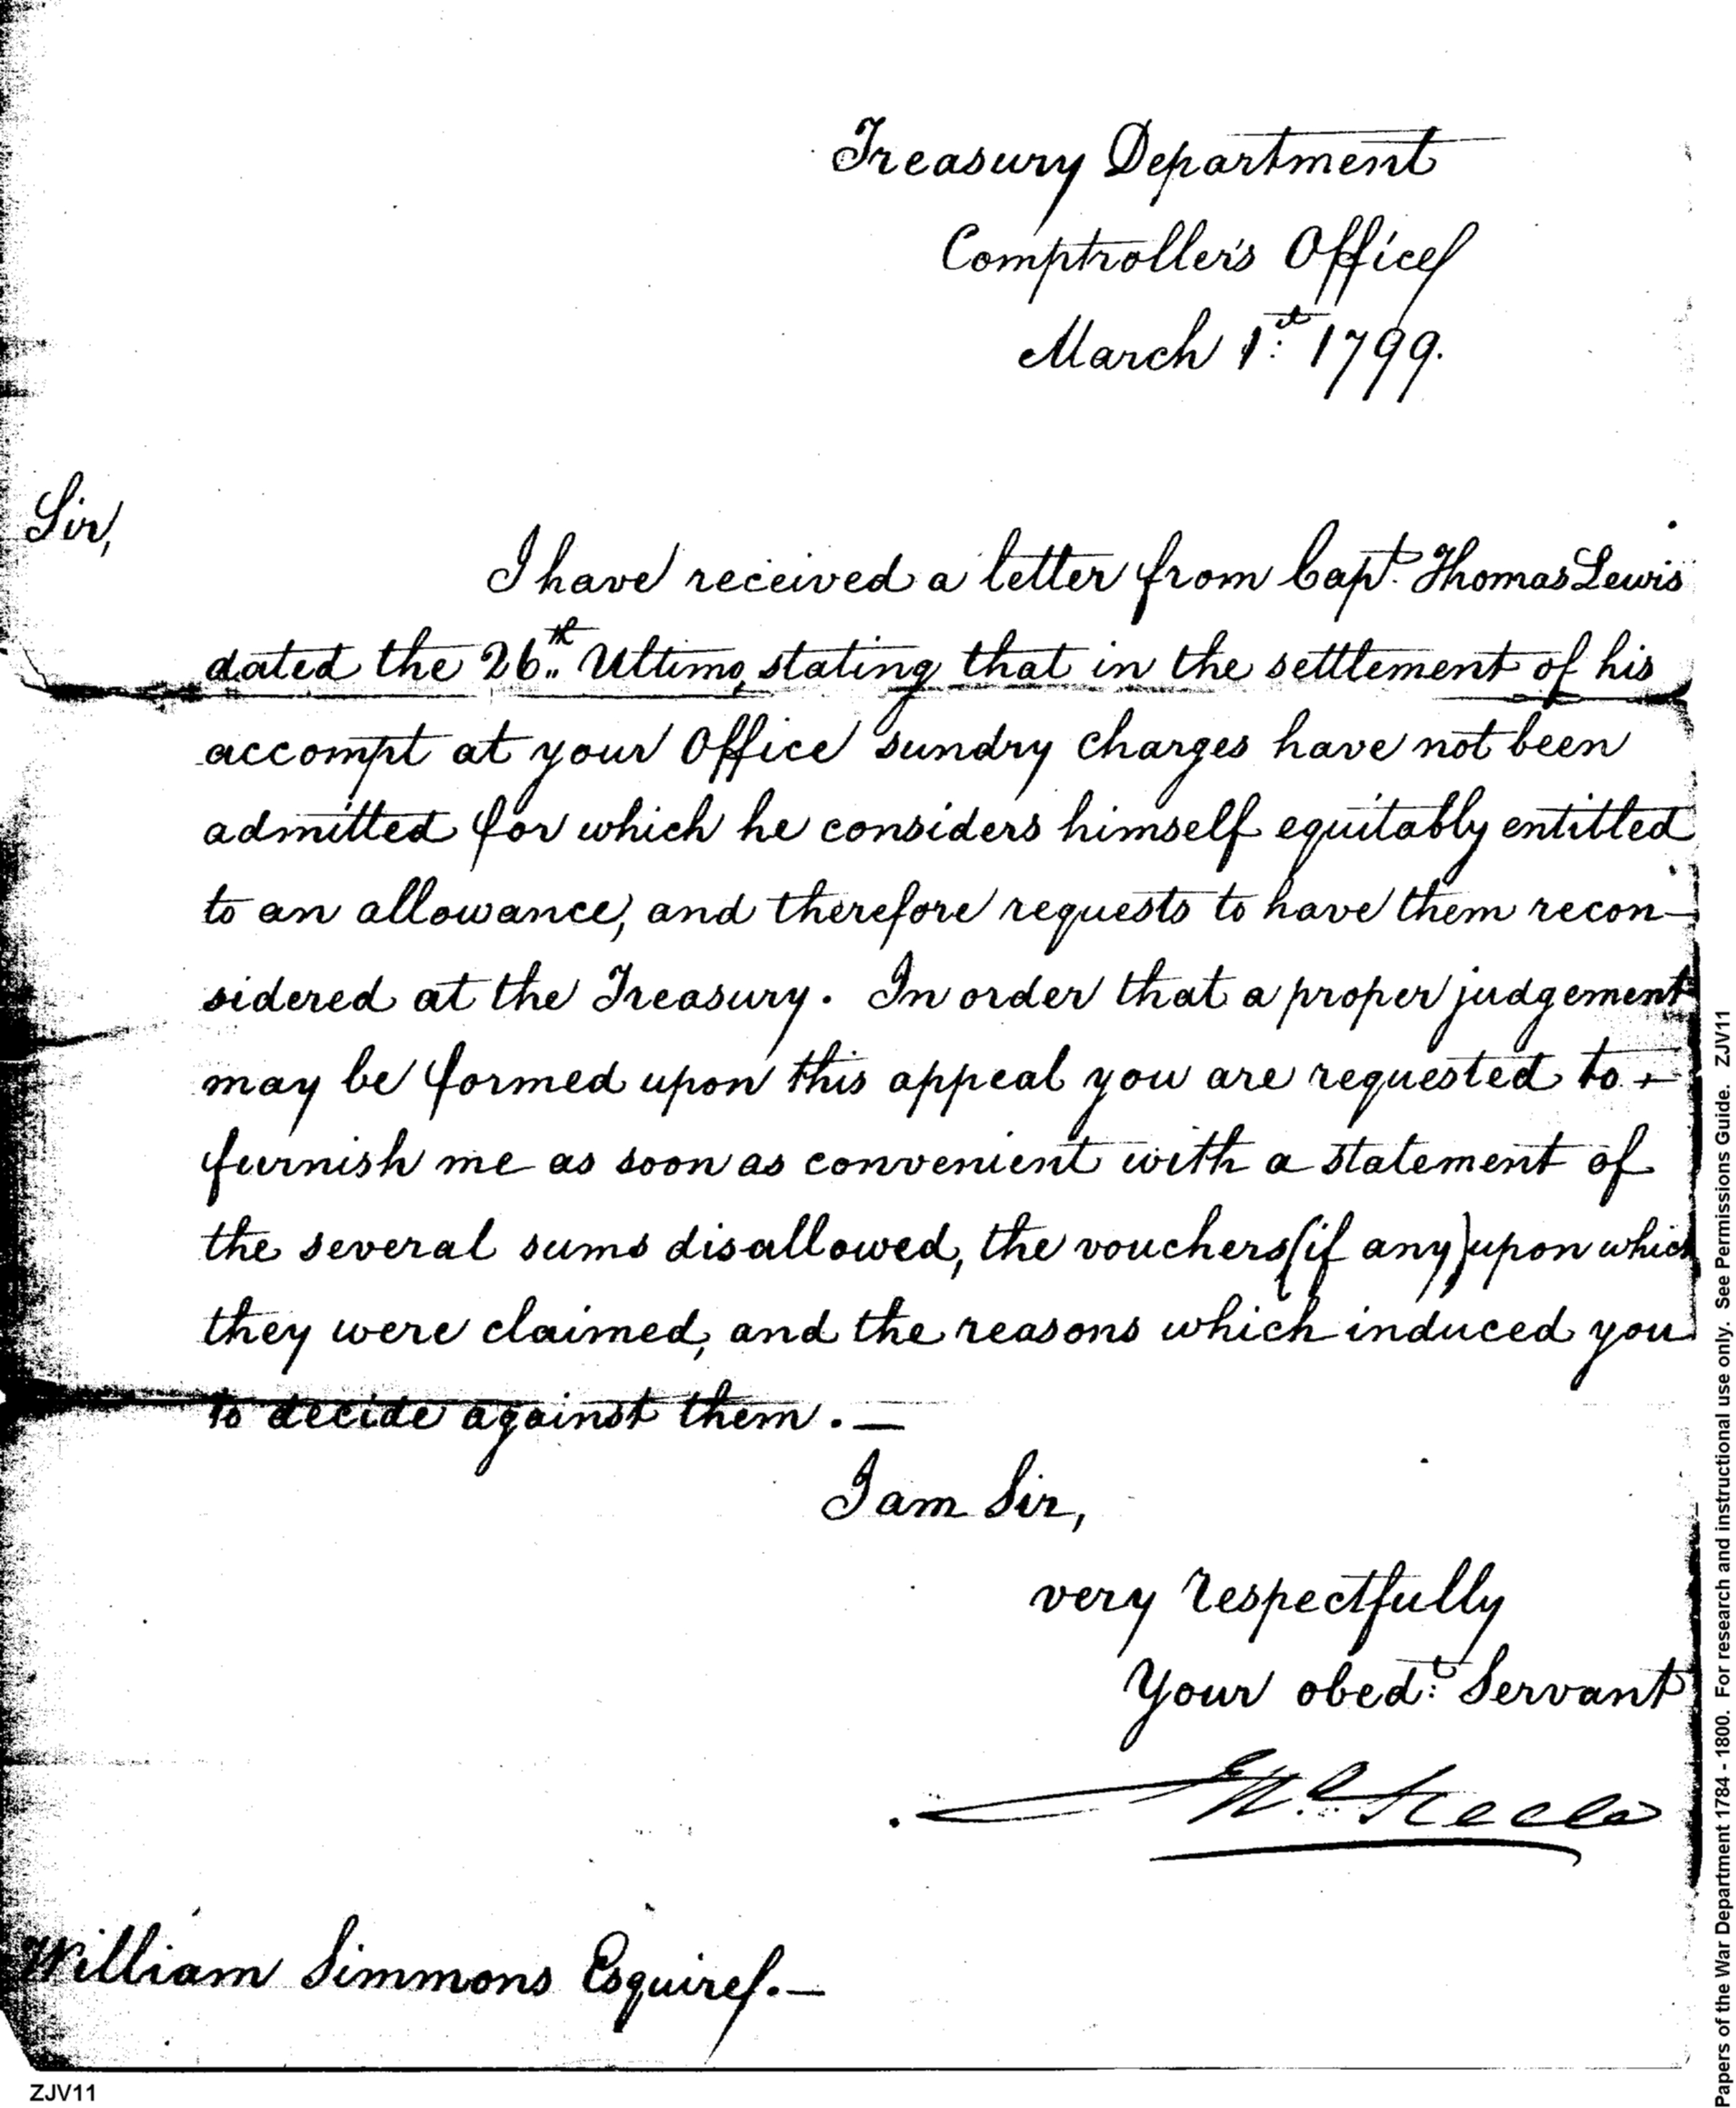 Treasury Department
Comptroller's Office
March 1st 1799.
Sir,
I have received a letter from Capt. Thomas Lewis
dated the 26th Ultimo, stating that in the settlement of his
accompt at your Office sundry charges have not been
admitted for which he considers himself equitably entitled
to an allowance, and therefore requests to have them recon-
sidered at the Treasury. In order that a proper judgement
may be formed upon this appeal you are requested to
furnish me as soon as convenient with a statement of
the several sums disallowed, the vouchers (if any) upon which
they were claimed, and the reasons which induced you
to decide against them. —
I am Sir,
very respectfully
Your obedt. Servant
Jno. Steele
William Simmons Esquire. —
ZJV11
Papers of the War Department 1784 - 1800. For research and instructional use only. See Permissions Guide. ZJV11